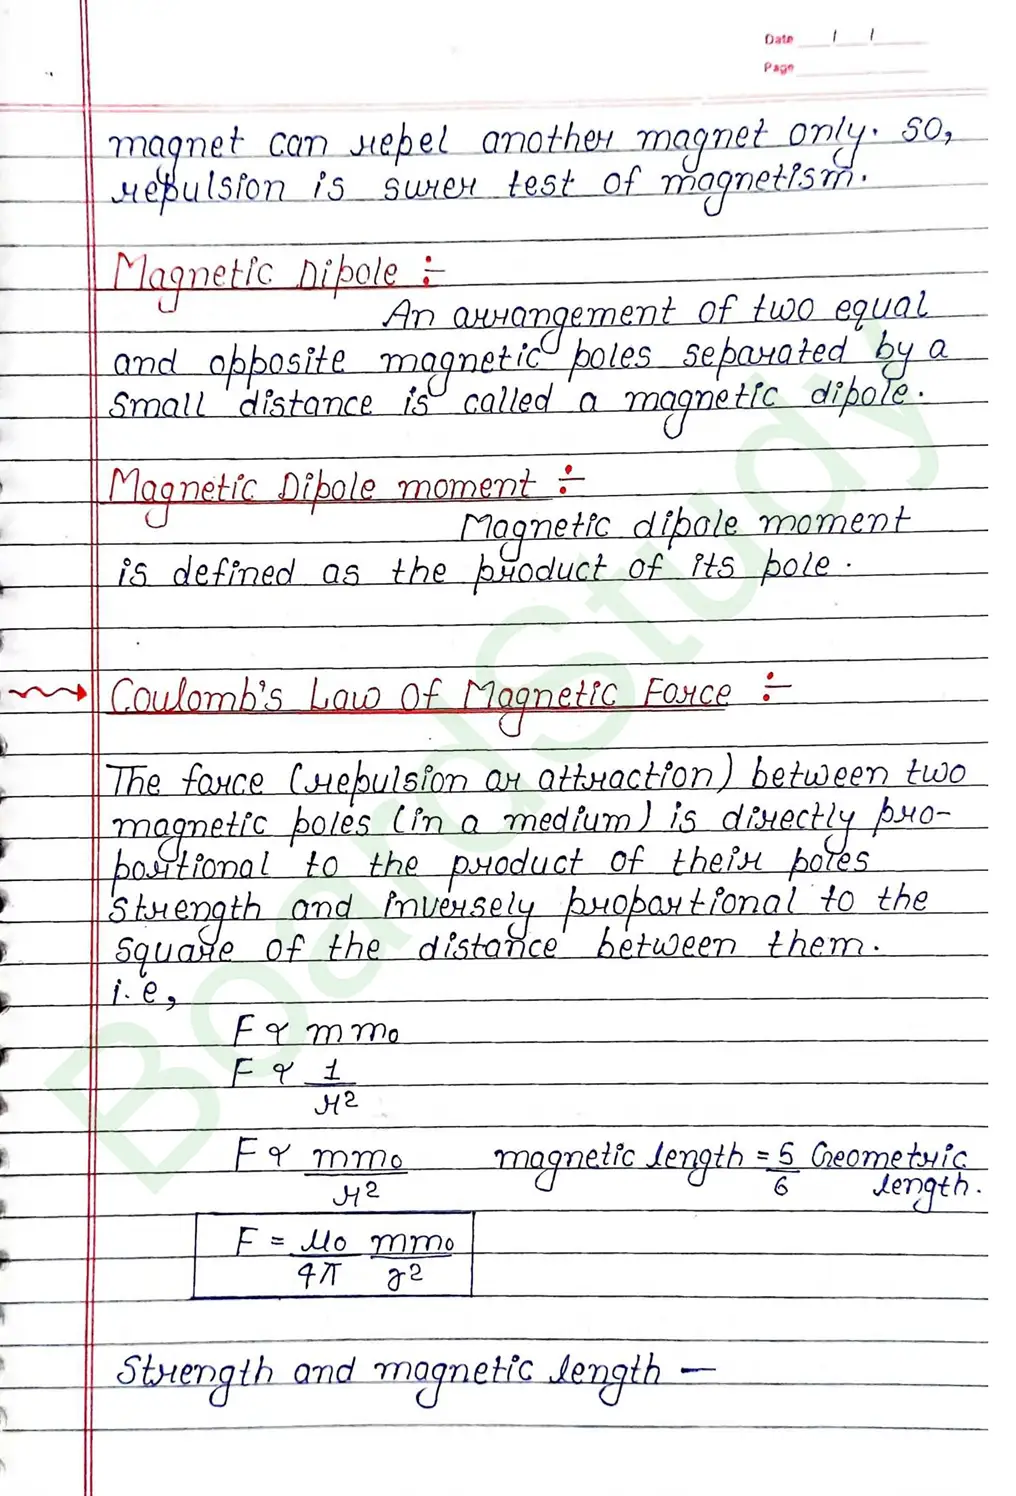 Date / /
Page
magnet can repel another magnet only. so,
repulsion is surer test of magnetism.
Magnetic Dipole ÷
An arrangement of two equal
and opposite magnetic poles separated by a
small distance is called a magnetic dipole.
Magnetic Dipole moment ÷
Magnetic dipole moment
is defined as the product of its pole.
Coulomb's Law Of Magnetic Force ÷
The force (repulsion or attraction) between two
magnetic poles (in a medium) is directly pro-
portional to the product of their poles
strength and inversely proportional to the
square of the distance between them.
i.e,
F ∝ mm₀
F ∝ 1/r²
F ∝ mm₀/r² magnetic length = 5/6 Geometric length.
F = μ₀/4π mm₀/r²
Strength and magnetic length —
BoardStudy